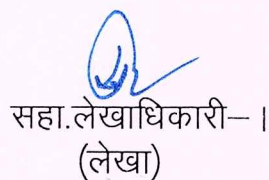 सहा.लेखाधिकारी– ।
(लेखा)